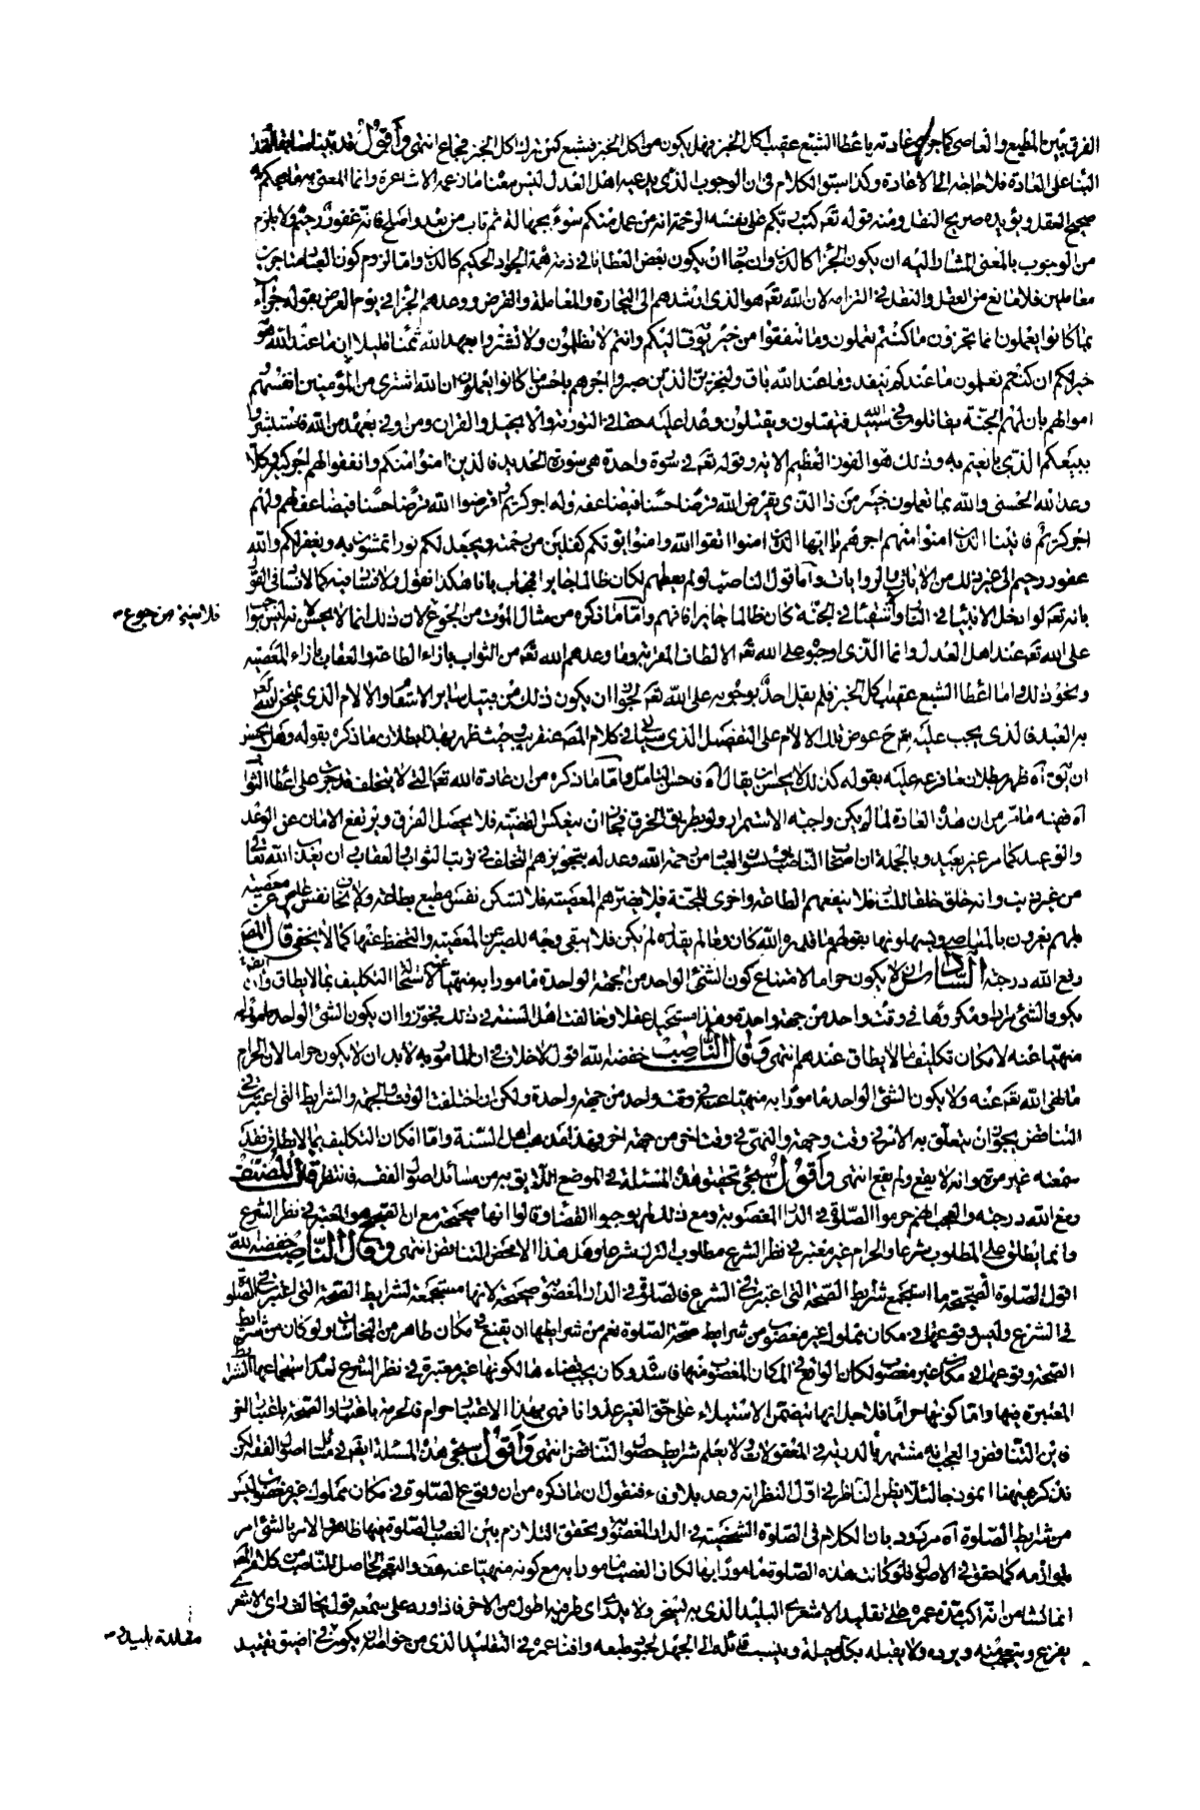 الفرق بين المطيع والعاصي كما جرى عادته باعطاء الشبع عقيب اكل الخبز فهل يكون من اكل الخبز فشبع كمن ترك اكل الخبز فجاع انتهى وأقول قد بينا سابقا
البناء على العادة فلا حاجة الى الاعادة وكذا استوفى الكلام في ان الوجوب الذي يدعيه اهل العدل ليس معناه ما زعمه الاشاعرة وانما المعنى به ما حكم به
صحيح العقل ويؤيده صريح النقل ومنه قوله تعه كتب ربكم على نفسه الرحمة انه من عمل منكم سوءً بجهالة ثم تاب من بعده واصلح فانه غفور رحيم ولا يلزم
من الوجوب بالمعنى المشار اليه ان يكون الجزاء كالدين وان جاز ان يكون بعض العطايا في ذمة همة الجواد الحكيم كالدين واما لزوم كون العباد متاجرين
معاملين فلا مانع من العقل والنقل في التزامه لان الله تعه هو الذي ارشدهم الى التجارة والمعاملة والقرض ووعدهم الجزاء في يوم العرض بقوله جزآء
بما كانوا يعملون انما تجزون ما كنتم تعملون وما تنفقوا من خير يوف اليكم وانتم لا تظلمون ولا تشتروا بعهد الله ثمنا قليلا ان ما عند الله هو
خير لكم ان كنتم تعلمون ما عندكم ينفد وما عند الله باق ولنجزين الذين صبروا اجرهم باحسن ما كانوا يعملون ان الله اشترى من المؤمنين انفسهم و
اموالهم بان لهم الجنة يقاتلون في سبيل الله فيقتلون ويقتلون وعدا عليه حقا في التورية والانجيل والقران ومن اوفى بعهده من الله فاستبشروا
ببيعكم الذي بايعتم به وذلك هو الفوز العظيم الاية وقوله تعه في سورة واحدة هي سورة الحديد فالذين امنوا منكم وانفقوا لهم اجر كبير وكلا
وعد الله الحسنى والله بما تعملون خبير من ذا الذي يقرض الله قرضا حسنا فيضاعفه وله اجر كريم واقرضوا الله قرضا حسنا فيضاعف لهم ولهم
اجر كريم فاتينا الذين امنوا منهم اجرهم يا ايها الذين امنوا اتقوا الله وامنوا يؤتكم كفلين من رحمته ويجعل لكم نورا تمشون به ويغفر لكم والله
غفور رحيم الى غير ذلك من الايات والروايات وأما قول الناصب لو لم يعطهم لكان ظالما جابرا فجاب بانا هكذا نقول ولا نتحاشا فيه كما لا نتحاشى في القول
بانه تعه لو ادخل الانبياء في النار والشقياء في الجنة كان ظالما جابرا فافهم واما ما ذكره من مثال الموت من الجوع لان ذلك انما لا يحسن
على الله تعه عند اهل العدل وانما الذي اوجبوه على الله تعه الالطاف المقربة وما وعدهم الله تعه من الثواب بازاء الطاعة والعقاب بازاء المعصية
ونحو ذلك واما اعطاء الشبع عقيب اكل الخبز فلم يقل احد بوجوبه على الله تعه لجواز ان يكون ذلك من قبيل ساير الاسقام والالام الذي يمتحن الله تعه
به العبد فالذي يجب عليه تع ح عوض تلك الالام على التفصيل الذي سيأتي في كلام المصه عنقريب حيث ظهر بهذا بطلان ما ذكره بقوله وهل يحسن
ان يق آه ظهر بطلان ما فرعه عليه بقوله كذلك لا يحسن ان يقال آه فاحسن التامل واما ما ذكره من ان عادة الله تعالى التي لا يتخلف قد جرت على اعطاء الثواب
آه ففيه ما مر من ان هذه العادة لما لم يكن واجبة الاستمرار ولو بطريق الخرق فجاز ان ينعكس القضية فلا يحصل الفرق ويرتفع الامان عن الوعد
والوعيد كما مر عن بعيد وبالجملة ان اصحاب الناصب يؤيسون العباد من رحمة الله وعدله بتجويزهم التخلف في ترتب الثواب والعقاب في ان يعذب الله تعالى
من غير ذنب وانه خلق خلقا للنار فلا ينفعهم الطاعة واخرى للجنة فلا يضرهم المعصية فلا تسكن نفس مطيع بطاعته ولا يخاف نفس عاص عن معصيته
فهم يغرون بالمعاصي ويسهلونها بقولهم ما قدره الله كان وما لم يقدره لم يكن فلا يبقى وجه للصبر عن المعصية والتحفظ عنها كما لا يخفى قال المصنف
رفع الله درجته السادس ان لا يكون حراما لامتناع كون الشئ الواحد من الجهة الواحدة مامورا به منهيا عنه لاستحالة التكليف بما لا يطاق وايضا
يكون الشئ مرادا ومكروها في وقت واحد من جهة واحدة وهذا مستحيل عقلا وخالفت اهل السنة في ذلك فجوزوا ان يكون الشئ الواحد مامورا به
منهيا عنه لامكان تكليف ما لا يطاق عندهم انتهى وقال الناصب خفضه الله اقول لا خلاف في ان المامور به لابد ان لا يكون حراما لان الحرام
ما نهى الله تعه عنه ولا يكون الشئ الواحد مامورا به منهيا عنه في وقت واحد من جهة واحدة ولكن ان اختلفت الوقت والجهة والشرايط التي اعتبرت في
التناقض يجوز ان يتعلق به الامر في وقت وجهة والنهي في وقت اخر من جهة اخرى وهذا مذهب اهل السنة واما امكان التكليف بما لا يطاق فقد
سمعته غير مرة وانه لا يقع ولم يقع انتهى وأقول سيجئ تحقيق هذه المسئلة في الموضع اللايق به من مسائل اصول الفقه فانتظر قال المصنف
رفع الله درجته والعجب انهم حرموا الصلوة في الدار المغصوبة ومع ذلك لم يوجبوا القضاء وقالوا انها صحيحة مع ان الصحيح هو المعتبر في نظر الشرع
وانما يطلق على المطلوب شرعا والحرام غير معتبر في نظر الشرع مطلوب الترك شرعا وهل هذا الا محض التناقض انتهى وقال الناصب خفضه الله
اقول الصلوة الصحيحة ما استجمع شرايط الصحة التي اعتبرت في الشرع فالصلوة في الدار المغصوبة صحيحة لانها مستجمعة لشرايط الصحة التي اعتبرت في الصلوة
في الشرع وليس وقوعها في مكان مملوك غير مغصوب من شرايط صحة الصلوة نعم من شرايطها ان يقع في مكان طاهر من النجاسات ولو كان من شرايط
الصحة وقوعها في مكان غير مغصوب لكان الواقع في المكان المغصوب منها فاسدة وكان يجب قضاءها لكونها غير معتبرة في نظر الشرع لعدم استجماعها الشرايط
المعتبرة فيها واما كونها حراما فلاجل انها تتضمن الاستيلاء على حق الغير عدوانا فهي بهذا الاعتبار حرام فالحرمة باعتبار والصحة باعتبار الغير
فاين التناقض والعجب انه مشتهر بالدربة في المعقولات ولا يعلم شرايط حصول التناقض انتهى وأقول سيجئ هذه المسئلة ايضا في مسائل اصول الفقه لكن
نذكر هيهنا انموذجا لئلا يظن الناظر في اول النظر انه وعد بلا وفاء فنقول ان ما ذكره من ان وقوع الصلوة في مكان مملوك غير مغصوب ليس
من شرايط الصلوة آه مردود بان الكلام في الصلوة الشخصية في الدار المغصوبة ويحقق التلازم بين الغصب والصلوة فيها ظاهر والامر بالشئ امر
بلوازمه كما حقق في الاصول فلو كانت هذه الصلوة مامورا بها لكان الغصب مامورا به مع كونه منهيا عنه هف والتعجب الحاصل للناصب من كلام المصه
انما نشا من انه اكب مدة عمره على تقليد الاشعري البليد الذي به يسخر ولا يدري اي طرفيه اطول من الاخر فاذا ورد على سمعه قول يخالف راي الاشعري
يفزع ويتعجب منه ويرده ولا يقبله بكل حيلة وينسب قائله الى الجهل لخبو طبعه وافناء عمره في التقليد الذي من خواصه ان يكون في اضيق تقييد
فلا مينة من جوع
مقلدة بليد